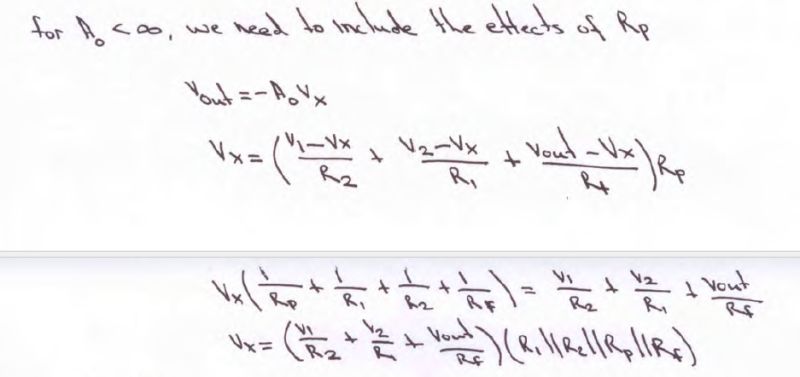 for A₀ < ∞, we need to include the effects of Rp
Vout = -A₀Vx
Vx = ((V1-Vx)/R2 + (V2-Vx)/R1 + (Vout-Vx)/Rf) Rp
Vx(1/Rp + 1/R1 + 1/R2 + 1/RF) = V1/R2 + V2/R1 + Vout/RF
Vx = (V1/R2 + V2/R1 + Vout/RF)(R1||R2||Rp||RF)